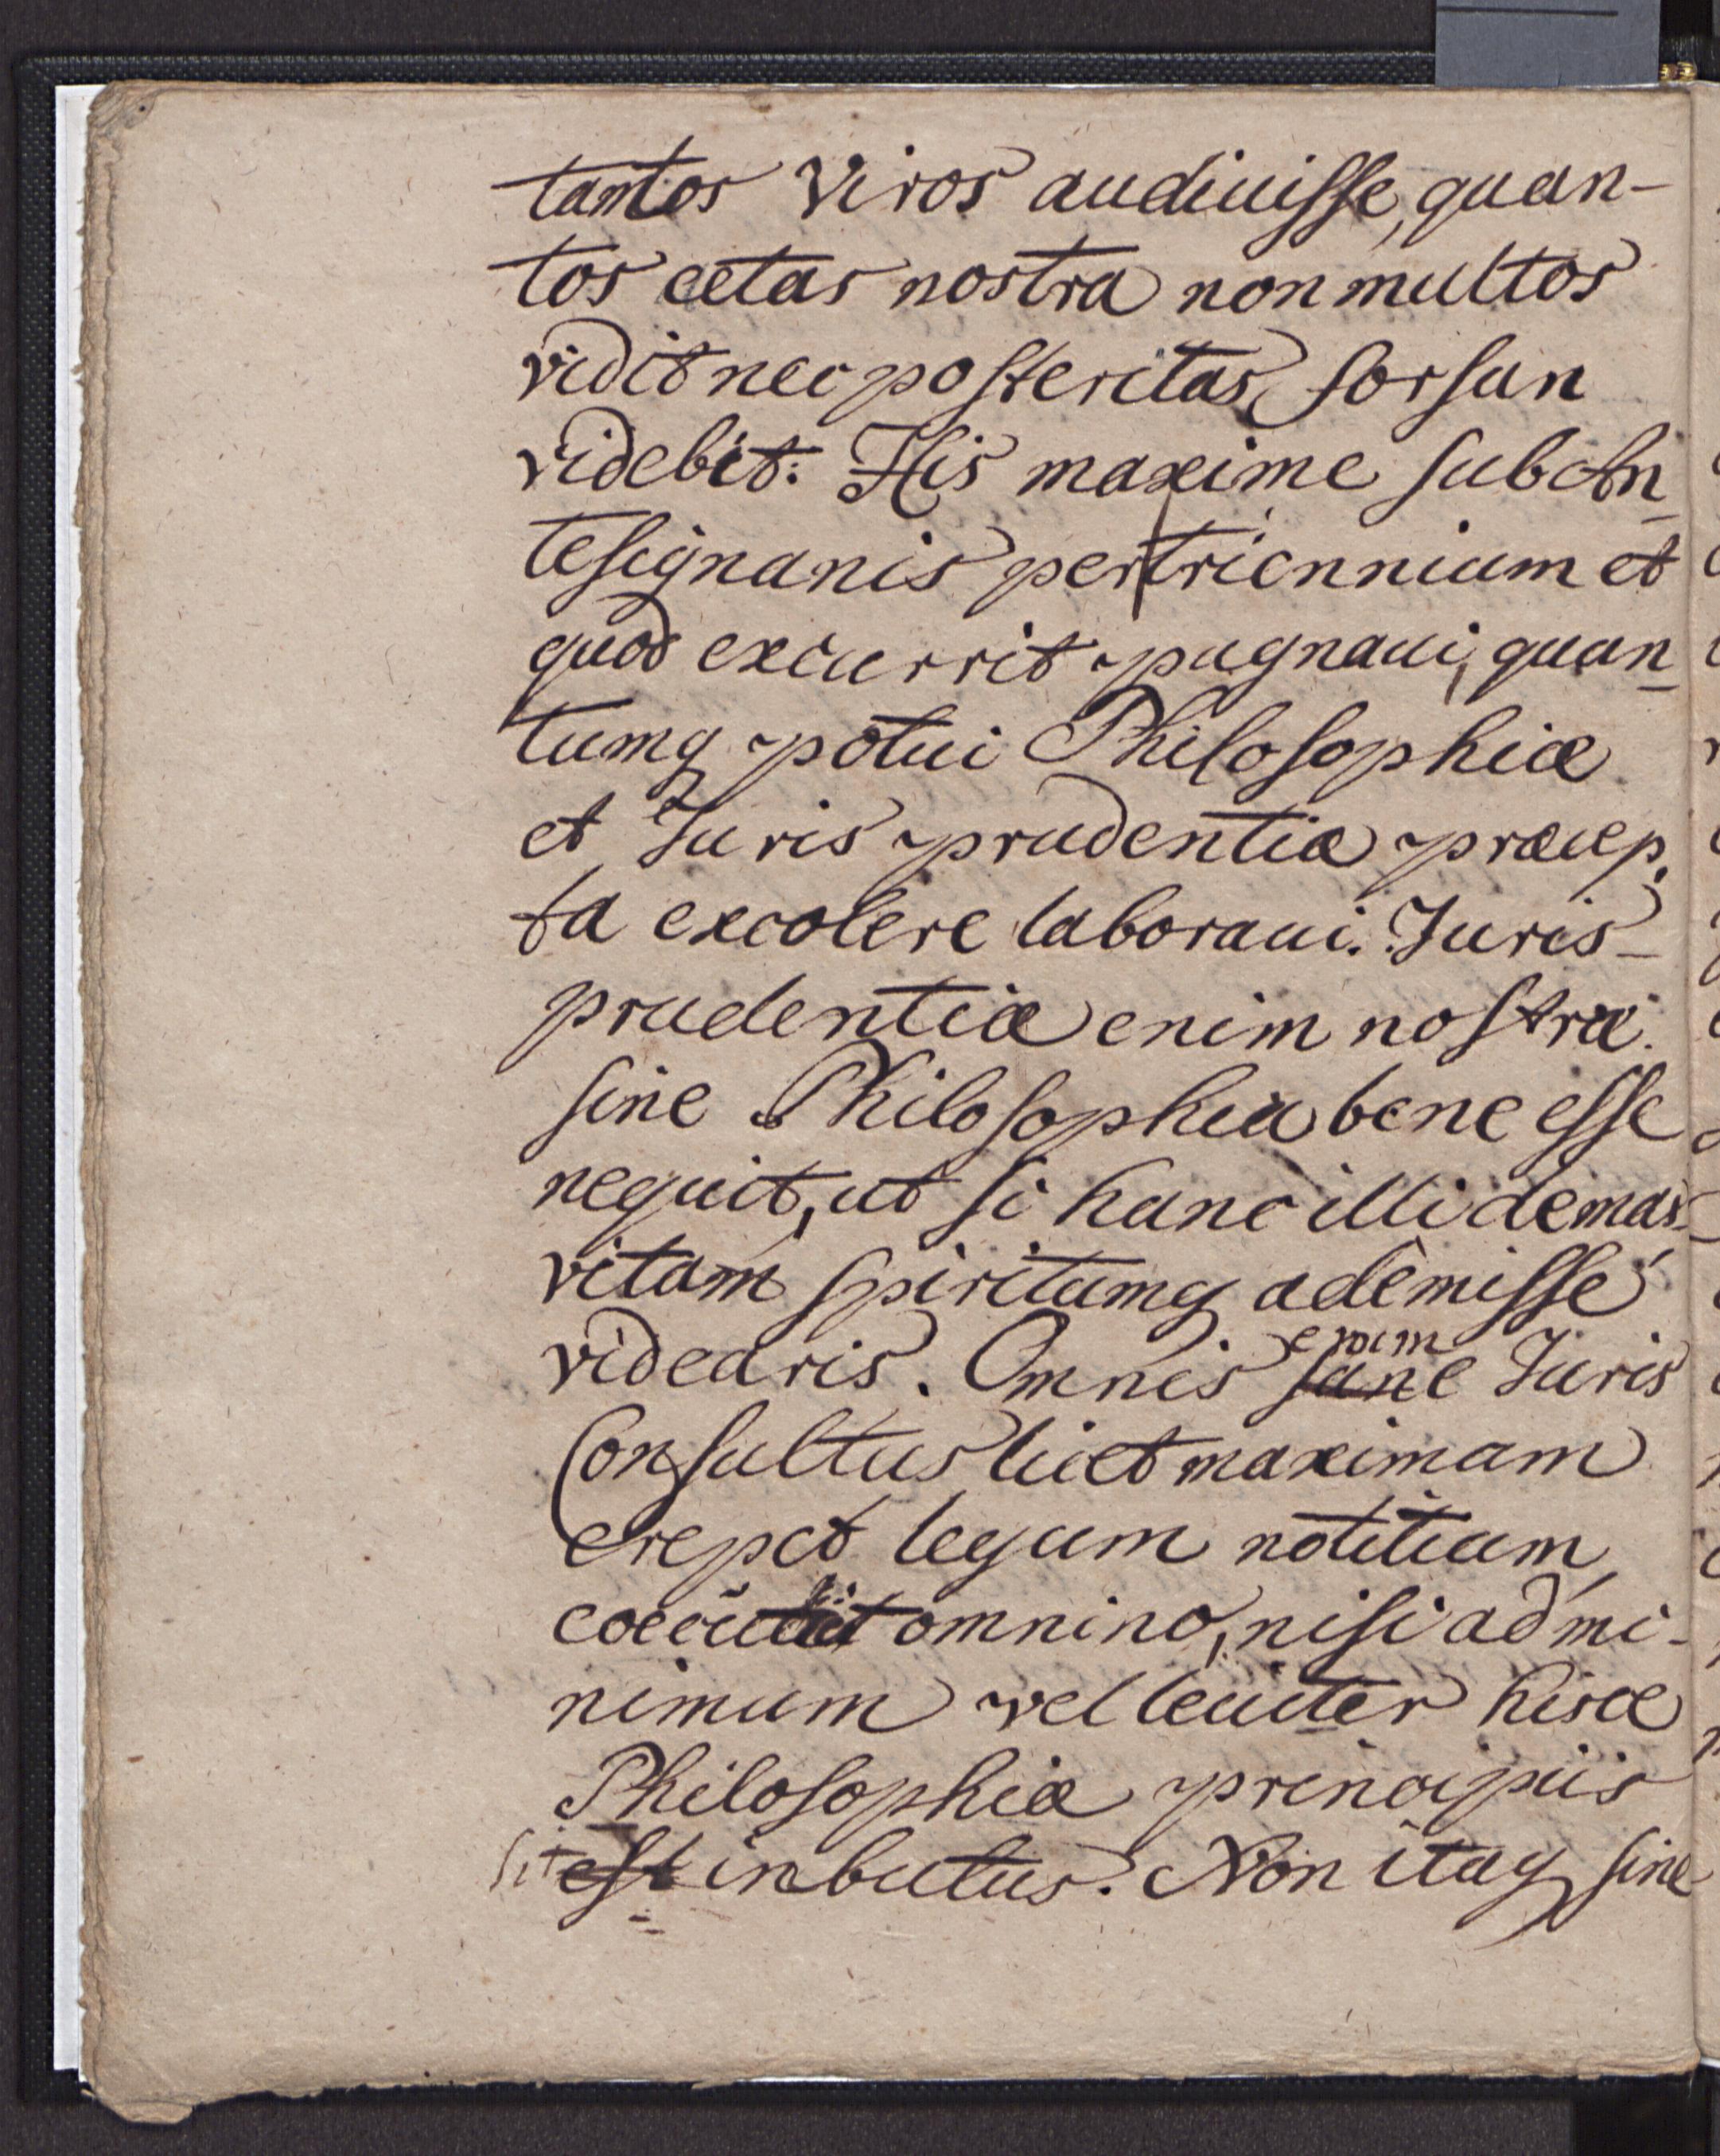 tantos Viros audiuisse, quan-
tos ætas nostra non multos
vidit nec posteritas forsan
videbit. His maxime sub An-
tesignanis per triennium et
quod excurrit pugnaui, quan-
tumq potui Philosophiæ
et Juris prudentiæ præcep
ta excolere laboraui. Juris-
prudentiæ enim nostræ
sine Philosophia bene esse
nequit, ut si hanc illi demas
vitam spiritumq ademisse
videaris. Omnis sane enim Juris
Consultus licet maximam
crepet legum notitiam,
omnino, nisi ad mi-
nimum vel leuiter hisce
Philosophiæ principiis
sit est inbutus. Non itaq sine